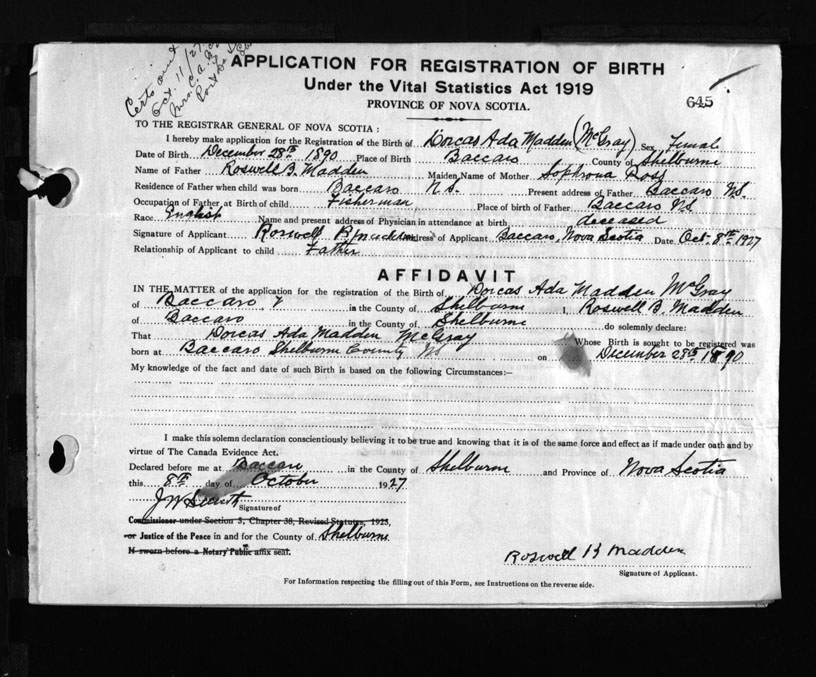 Certs out
Oct. 11/27
Mrs. C. A.
APPLICATION FOR REGISTRATION OF BIRTH
Under the Vital Statistics Act 1919
PROVINCE OF NOVA SCOTIA.
645
TO THE REGISTRAR GENERAL OF NOVA SCOTIA :
I hereby make application for the Registration of the Birth of Dorcas Ada Madden (McGray) Sex Female
Date of Birth December 28th 1890 Place of Birth Baccaro County of Shelburne
Name of Father Roswell B. Madden Maiden Name of Mother Sophrona Ross
Residence of Father when child was born Baccaro N.S. Present address of Father Baccaro N.S.
Occupation of Father at Birth of child Fisherman Place of birth of Father Baccaro N.S.
Race English Name and present address of Physician in attendance at birth deceased
Signature of Applicant Roswell B Madden Address of Applicant Baccaro, Nova Scotia Date Oct. 8th 1927
Relationship of Applicant to child Father
AFFIDAVIT
IN THE MATTER of the application for the registration of the Birth of Dorcas Ada Madden McGray
of Baccaro in the County of Shelburne I, Roswell B. Madden
of Baccaro in the County of Shelburne do solemnly declare:
That Dorcas Ada Madden McGray Whose Birth is sought to be registered was
born at Baccaro Shelburn County NS on December 28th 1890
My knowledge of the fact and date of such Birth is based on the following Circumstances:—
I make this solemn declaration conscientiously believing it to be true and knowing that it is of the same force and effect as if made under oath and by
virtue of The Canada Evidence Act.
Declared before me at Baccaro in the County of Shelburne and Province of Nova Scotia
this 8th day of October 1927
J W Smith
Signature of
Commissioner under Section 3, Chapter 38, Revised Statutes, 1923,
or Justice of the Peace in and for the County of Shelburne
If sworn before a Notary Public affix seal.
Roswell B Madden
Signature of Applicant.
For Information respecting the filling out of this Form, see Instructions on the reverse side.